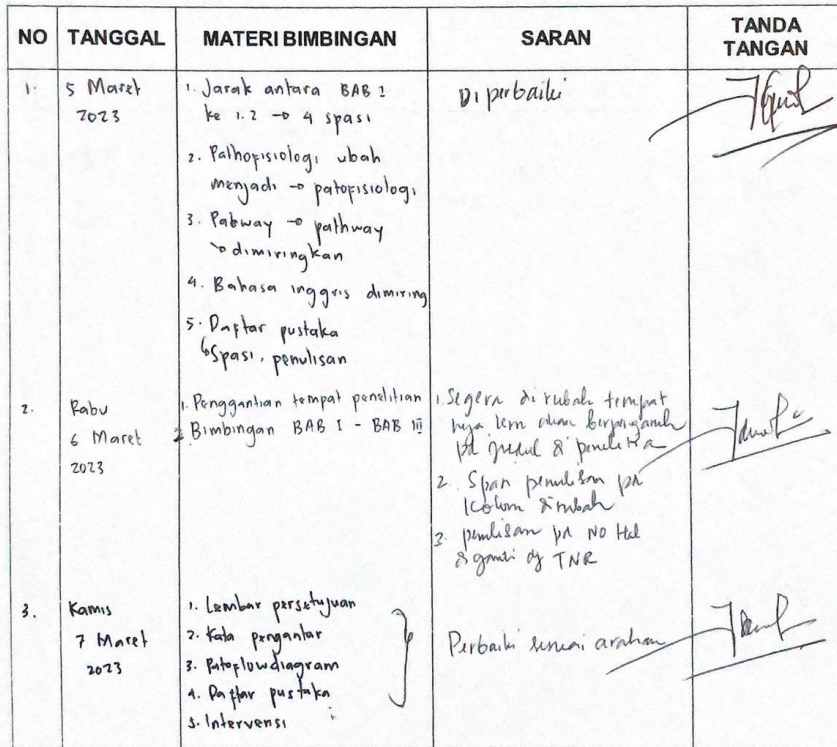 NO TANGGAL MATERI BIMBINGAN SARAN TANDA TANGAN
1. 5 Maret 2023
1. Jarak antara BAB I
ke 1.2 → 4 spasi
2. Pathofisiologi ubah
menjadi → patofisiologi
3. Pabway → pathway
↳ dimiringkan
4. Bahasa inggris dimiring
5. Daftar pustaka
↳ Spasi, penulisan
Diperbaiki
2. Rabu
6 Maret
2023
1. Penggantian tempat penelitian
2. Bimbingan BAB I - BAB III
1. Segera dirubah tempat
nya krn akan berpengaruh
pd judul &
2. Spasi penulisan pd
kolom dirubah
3. penulisan pd No Hal
diganti dg TNR
3. Kamis
7 Maret
2023
1. Lembar persetujuan
2. Kata pengantar
3. Patoflowdiagram
4. Daftar pustaka
5. Intervensi
Perbaiki sesuai arahan